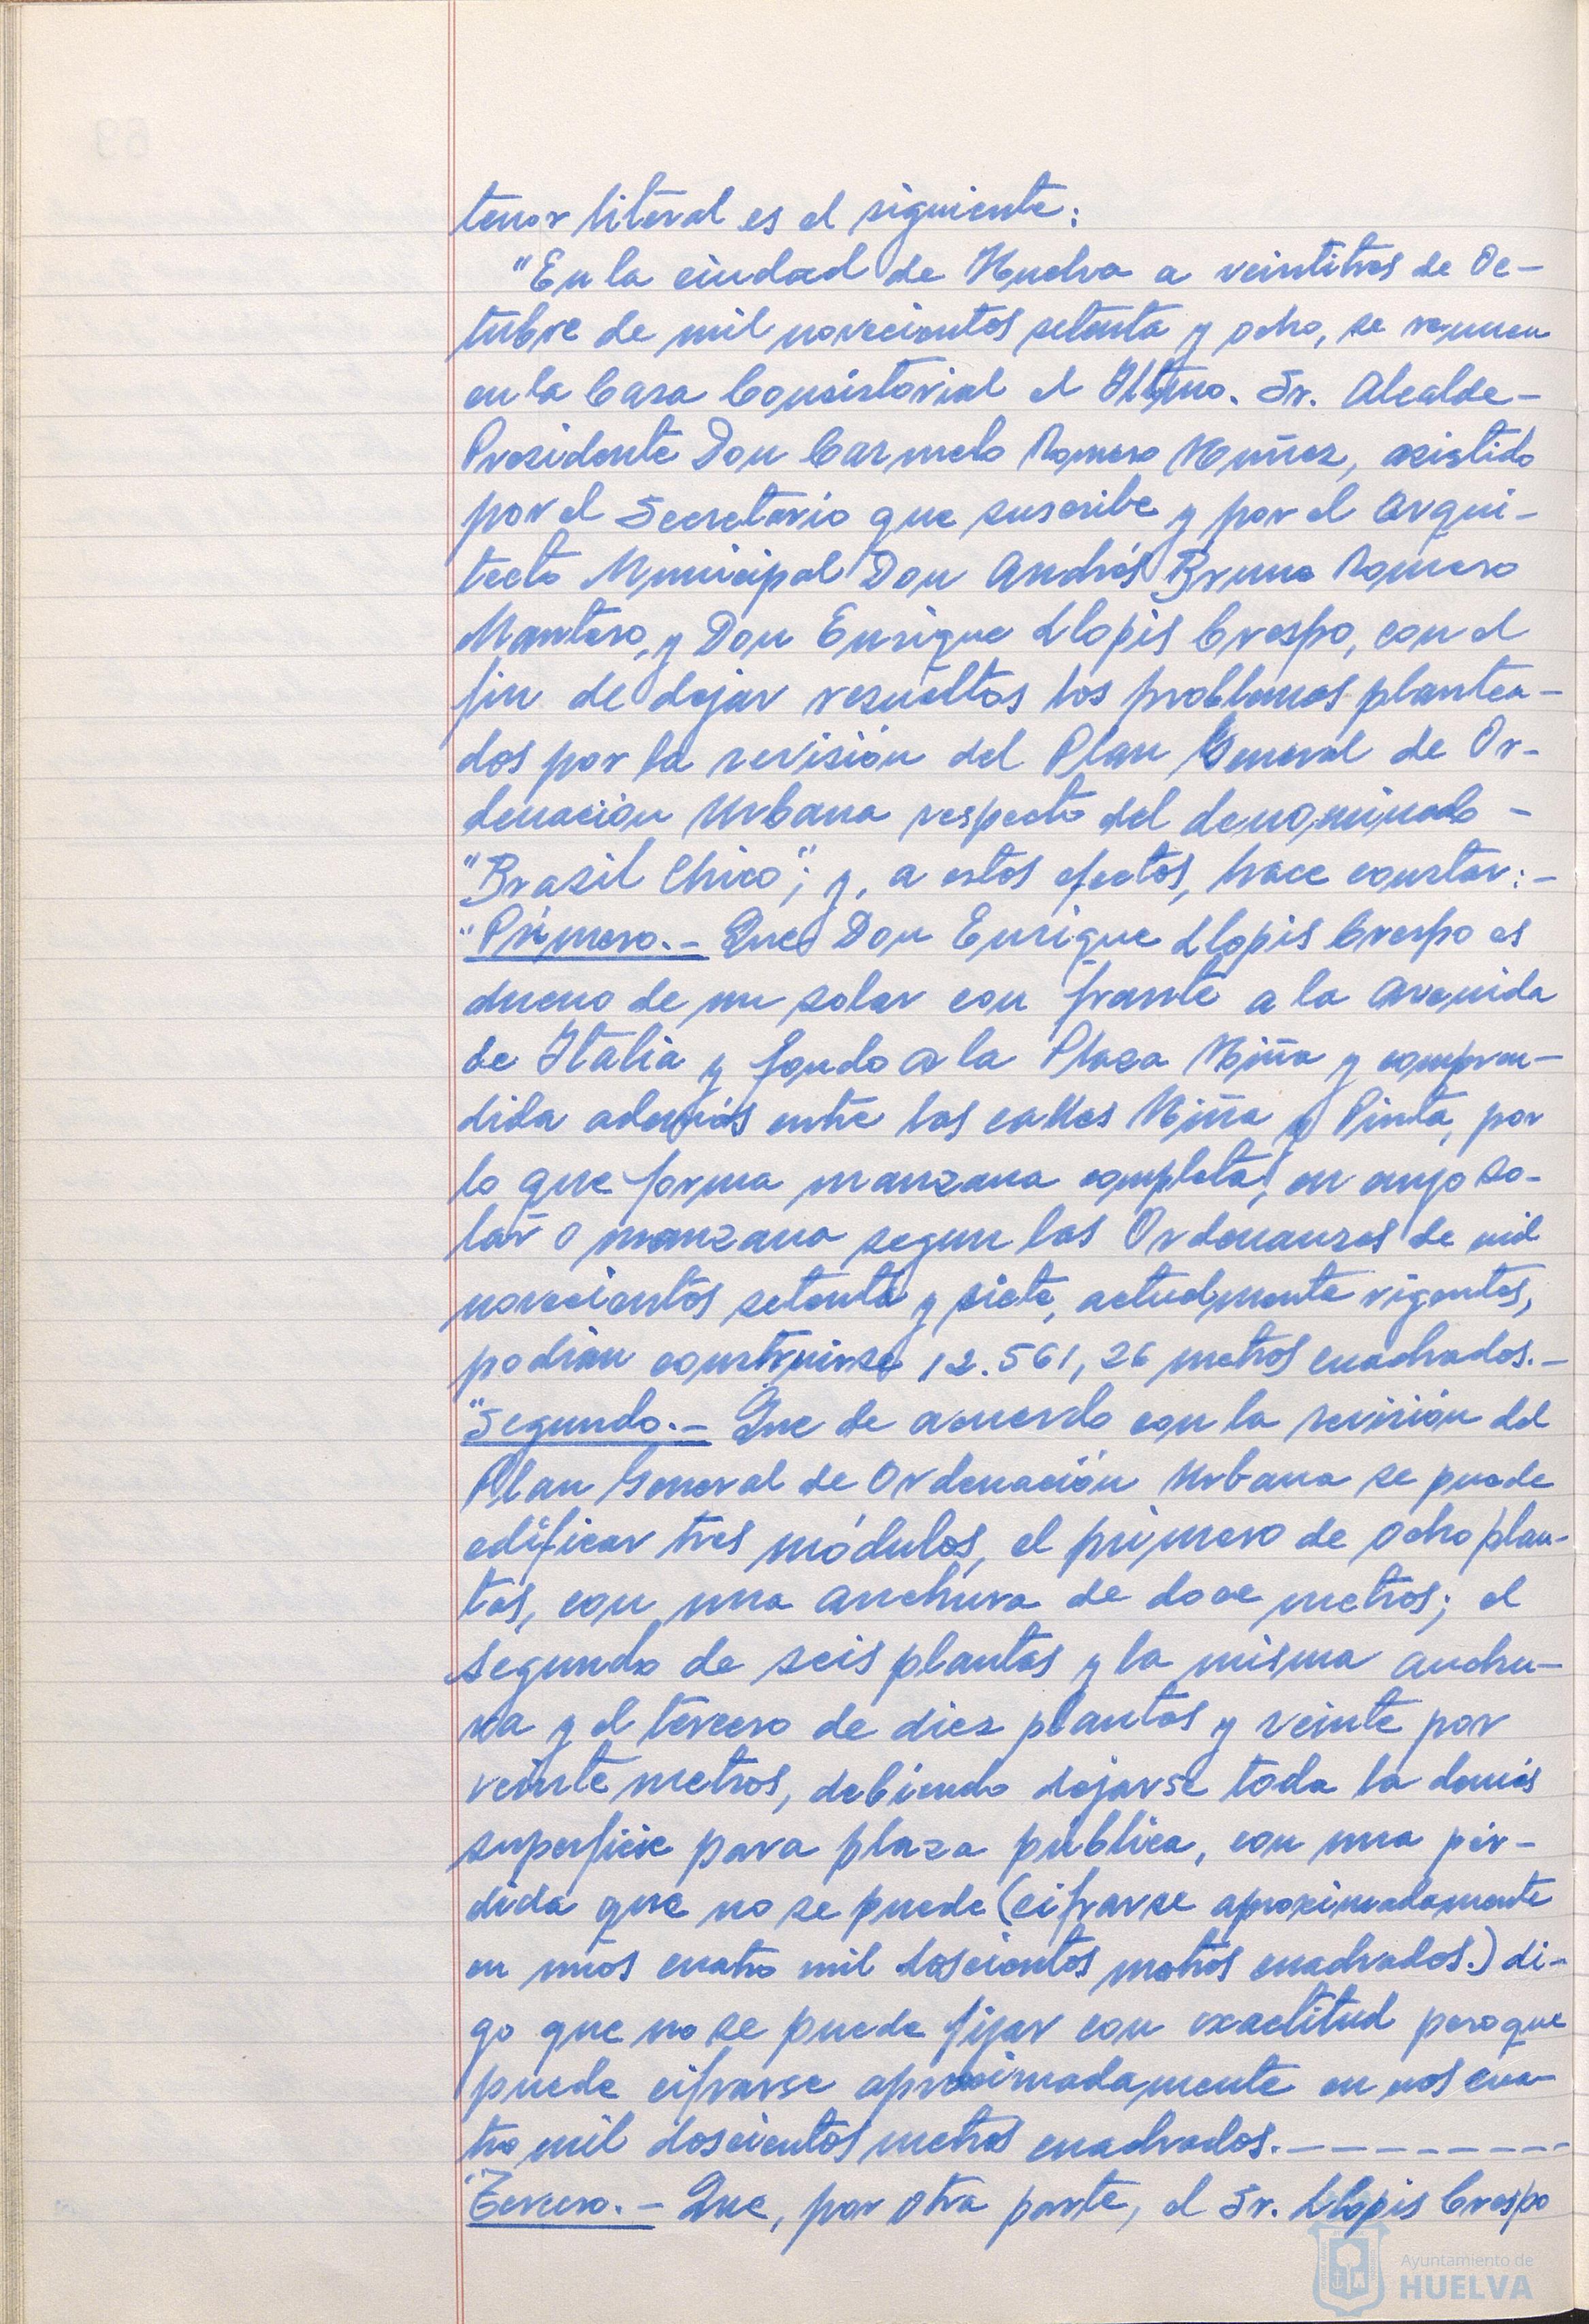 tenor literal es el siguiente:
"En la ciudad de Huelva a veintitres de Oc-
tubre de mil novecientos setenta y ocho, se reunen
en la Casa Consistorial el Iltmo. Sr. Alcalde-
Presidente Don Carmelo Romero Núñez, asistido
por el Secretario que suscribe y por el Arqui-
tecto Municipal Don Andrés Bruno Romero
Mantero, y Don Enrique Llopis Crespo, con el
fin de dejar resueltos los problemas plantea-
dos por la revisión del Plan General de Or-
denación Urbana respecto del denominado -
"Brasil Chico"; y, a estos efectos, hace constar:-
"Primero.- Que Don Enrique Llopis Crespo es
dueno de un solar con frente a la Avenida
de Italia y fondo a la Plaza Niña y compren-
dida además entre las calles Niña y Pinta, por
lo que forma manzana completa, en cuyo so-
lar o manzana segun las Ordenanzas de mil
novecientos setenta y siete, actualmente vigentes,
podian construirse 12.561,26 metros cuadrados.-
"Segundo.- Que de acuerdo con la revisión del
Plan General de Ordenación Urbana se puede
edificar tres módulos, el primero de ocho plan-
tas, con una anchura de doce metros; el
segundo de seis plantas y la misma anchu-
ra y el tercero de diez plantas y veinte por
veinte metros, debiendo dejarse toda la demás
superficie para plaza pública, con una pér-
dida que no se puede (cifrarse aproximadamente
en unos cuatro mil doscientos metros cuadrados.) di-
go que no se puede fijar con exactitud pero que
puede cifrarse aproximadamente en unos cua-
tro mil doscientos metros cuadrados.- - - - - - - - -
"Tercero.- Que, por otra parte, el Sr. Llopis Crespo
Ayuntamiento de
HUELVA